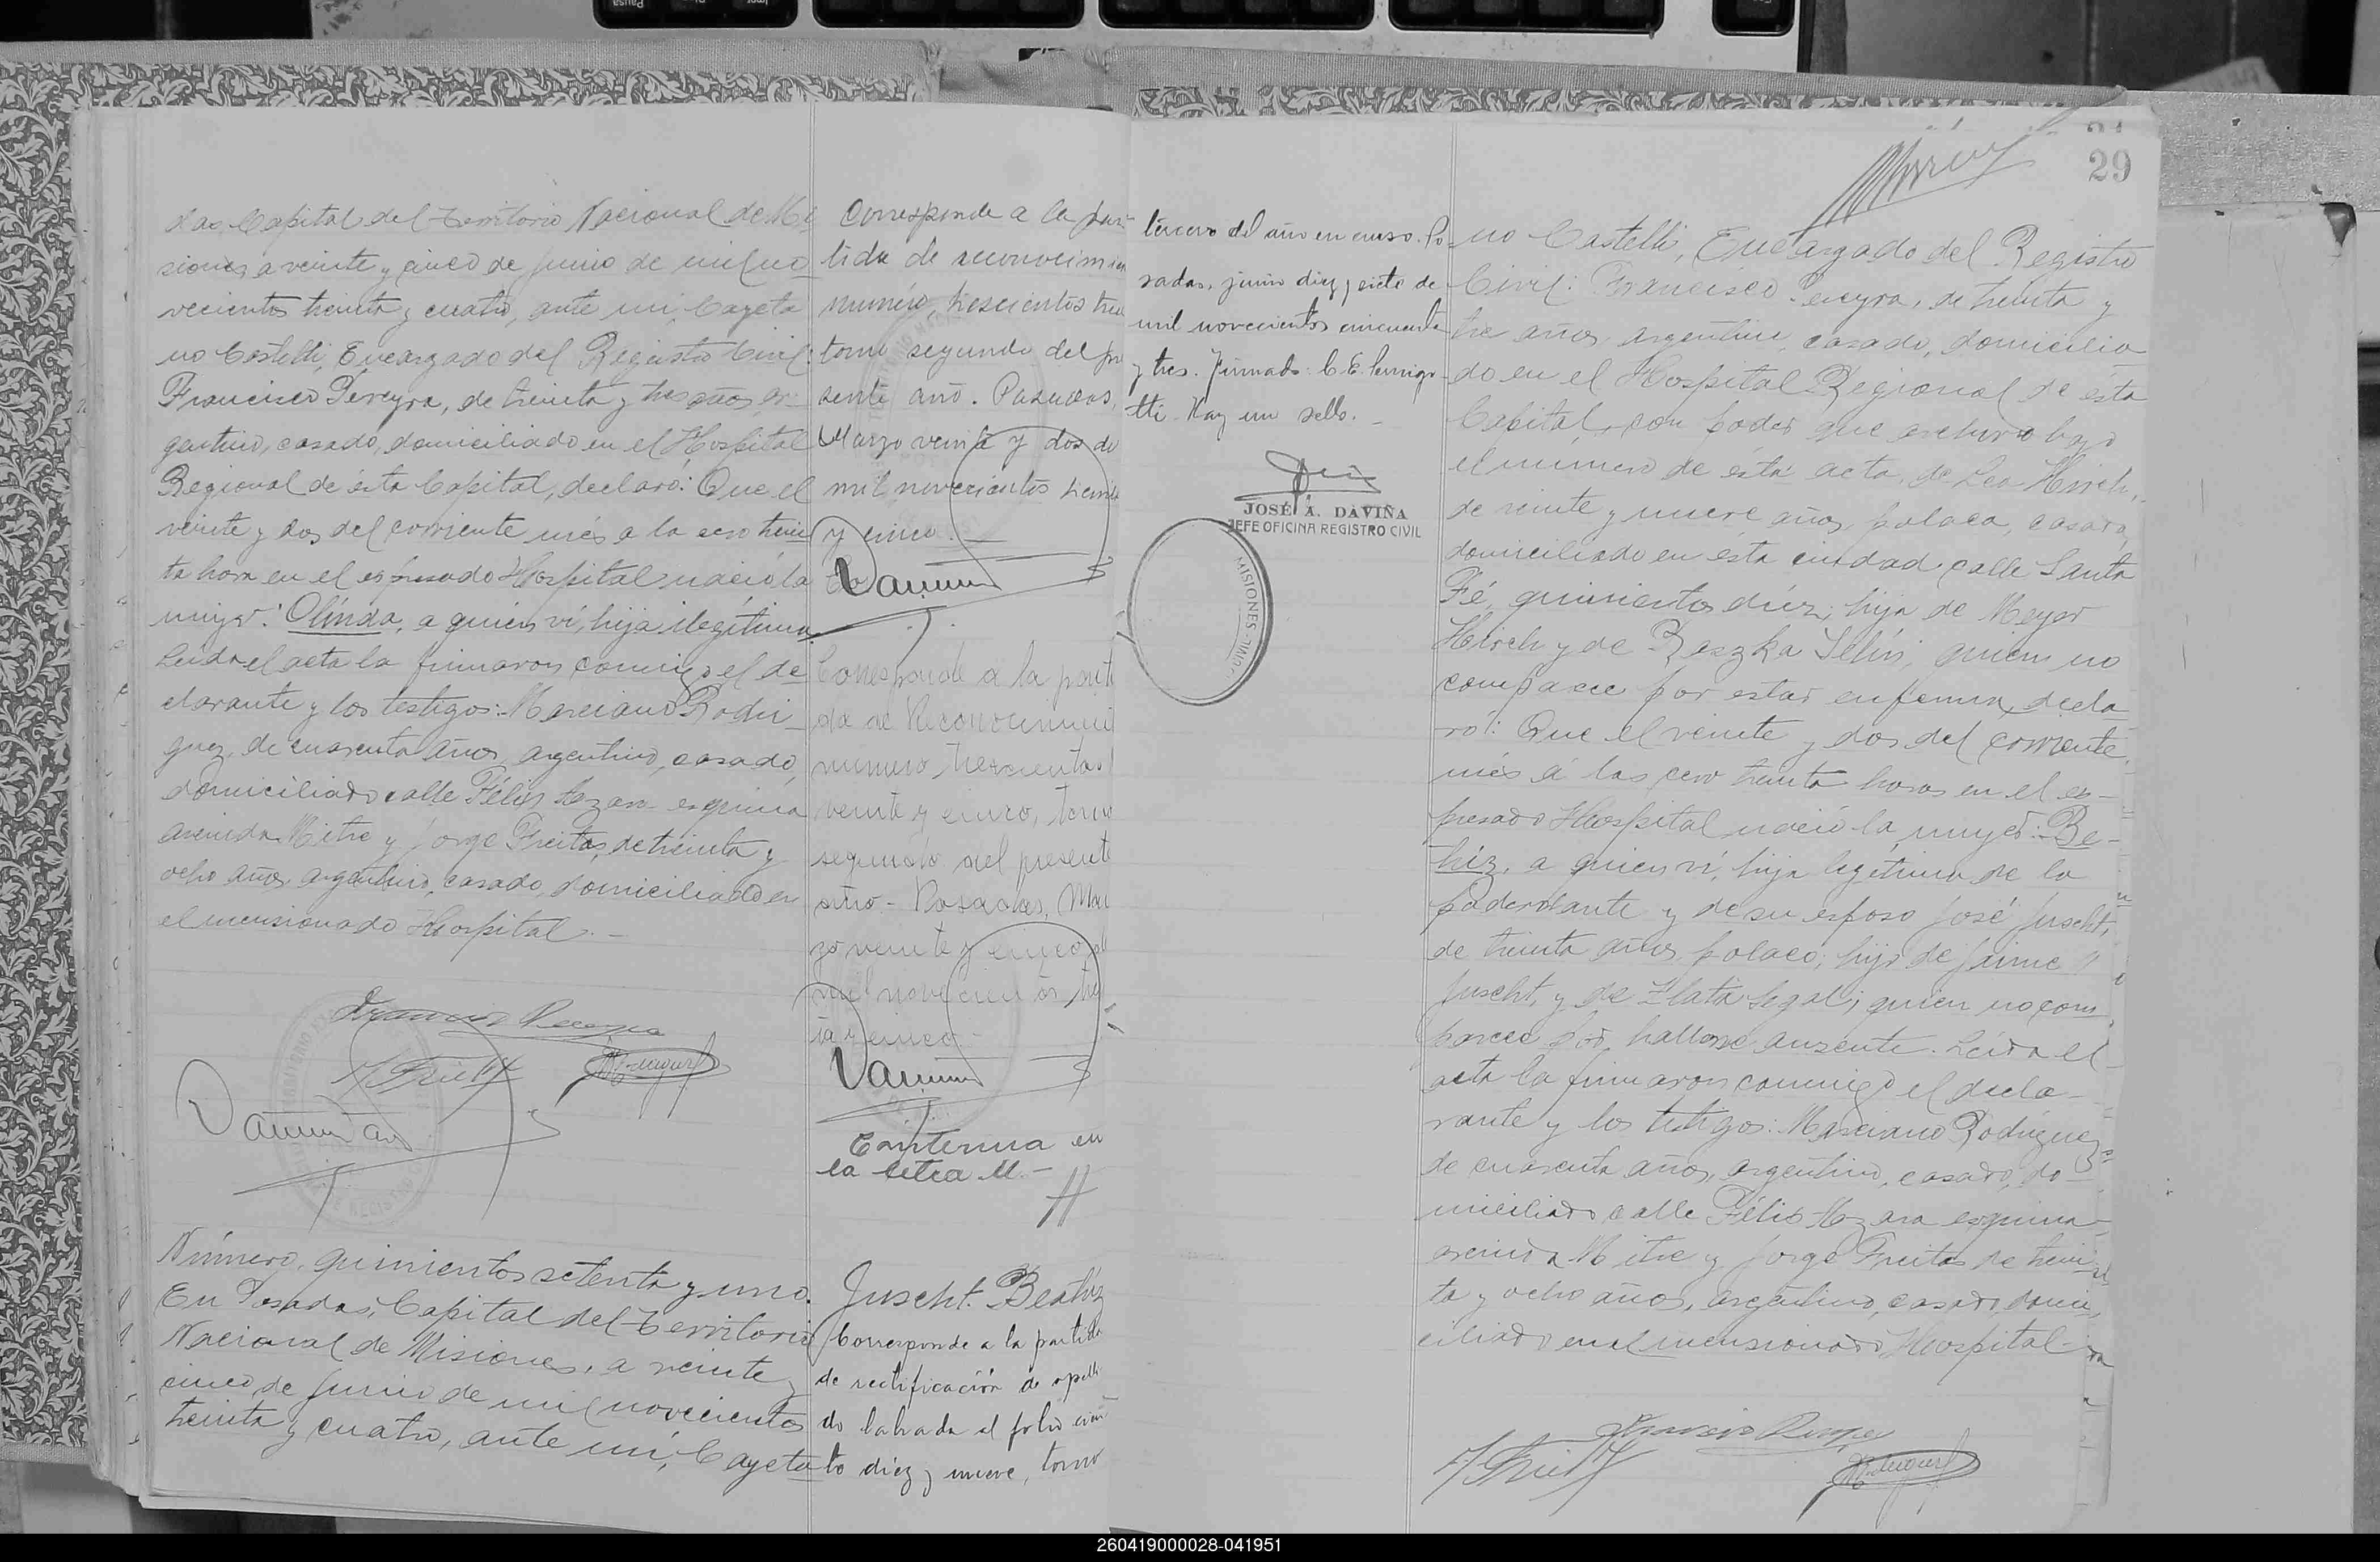 das, Capital del Territorio Nacional de Mi-
siones a veinte y cinco de junio de mil no
vecientos treinta y cuatro, ante mi, Cayeta
no Castelli, Encargado del Registro Civil:
Francisco Pereyra, de treinta y tres años, ar-
gentino, casado, domiciliado en el Hospital
Regional de ésta Capital, declaró: Que el
veinte y dos del corriente més a la cero trein
ta hora en el expresado Hospital nació la
mujer: Olinda, a quien ví, hija ilegítima.
Leida el acta la firmaron conmigo el de
clarante y los testigos: Marciano Rodri-
guez, de cuarenta años, argentino, casado,
domiciliado calle Félix Azara esquina
avenida Mitre y Jorge Freitas, de treinta y
ocho años, argentino, casado, domiciliado en
el mensionado Hospital.-
Número, quinientos setenta y uno.
En Posadas, Capital del Territorio
Nacional de Misiones, a veinte y
cinco de junio de mil novecientos
treinta y cuatro, ante mi, Cayeta
Corresponde a la par-
tida de reconocimien
número, trescientos
tomo segundo del pre
sente año. Posadas,
Marzo veinte y dos de
mil novecientos treinta
y cinco.-
Corresponde a la parti
da de Reconocimien
número, trescientos
veinte y cinco, tomo
segundo del presente
año - Posadas, Mar
zo veinte y cinco de
mil novecientos trein
ta y cinco-
Continua en
la letra M.-
Juscht. Beatriz
Corresponde a la partida
de rectificación de apelli
do labrada al folio cien
to diez y nueve, tomo
tercero del año en curso. Po
sadas, junio diez y siete de
mil novecientos cincuenta
y tres. Firmado: C. E.
Hay un sello.-
JOSÉ A. DAVIÑA
JEFE OFICINA REGISTRO CIVIL
MISIONES
29
no Castelli, Encargado del Registro
Civil: Francisco Pereyra, de treinta y
tre años, argentino, casado, domicilia
do en el Hospital Regional de ésta
Capital, con poder que archivo bajo
el número de ésta acta, de Lea Hirch,
de veinte y nueve años, polaca, casada,
domiciliado en ésta ciudad calle Santa
Fé, quinientos diéz, hija de Meyer
Hirch y de Reszka, quien no
comparece por estar enferma, decla-
ró: Que el veinte y dos del corriente
més á las cero treinta horas en el ex-
presado Hospital nació la mujer: Be-
triz, a quien ví, hija legitima de la
poderdante y de su esposo José Juscht,
de treinta años, polaco, hijo de Jaime
Juscht, y de Zlata Segal; quien no com
parece por hallarse ausente. Leida el
acta la firmaron conmigo el decla-
rante y los testigos: Marciano Rodriguez
de cuarenta años, argentino, casado, do-
miciliado calle Félix Azara esquina
avenida Mitre y Jorge Freitas de trein
ta y ocho años, argentino, casado, domi
ciliado en el mensionado Hospital-
260419000028-041951